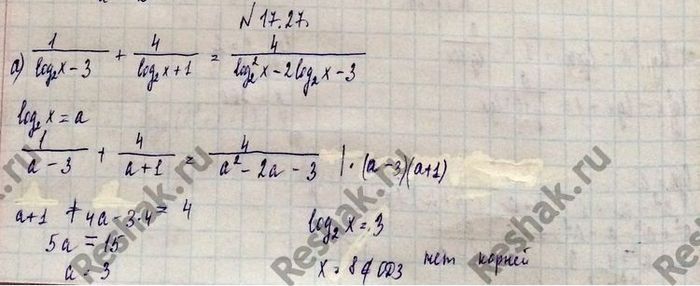 N 17.27.
а) 1/(log₂x - 3) + 4/(log₂x + 1) = 4/(log₂²x - 2log₂x - 3)
log₂x = a
1/(a - 3) + 4/(a + 1) = 4/(a² - 2a - 3) | · (a - 3)(a + 1)
a + 1 + 4a - 3·4 = 4
5a = 15
a = 3
log₂x = 3
x = 8 ∉ ОДЗ нет корней
Reshak.ru
Reshak.ru
Reshak.ru
Reshak.ru